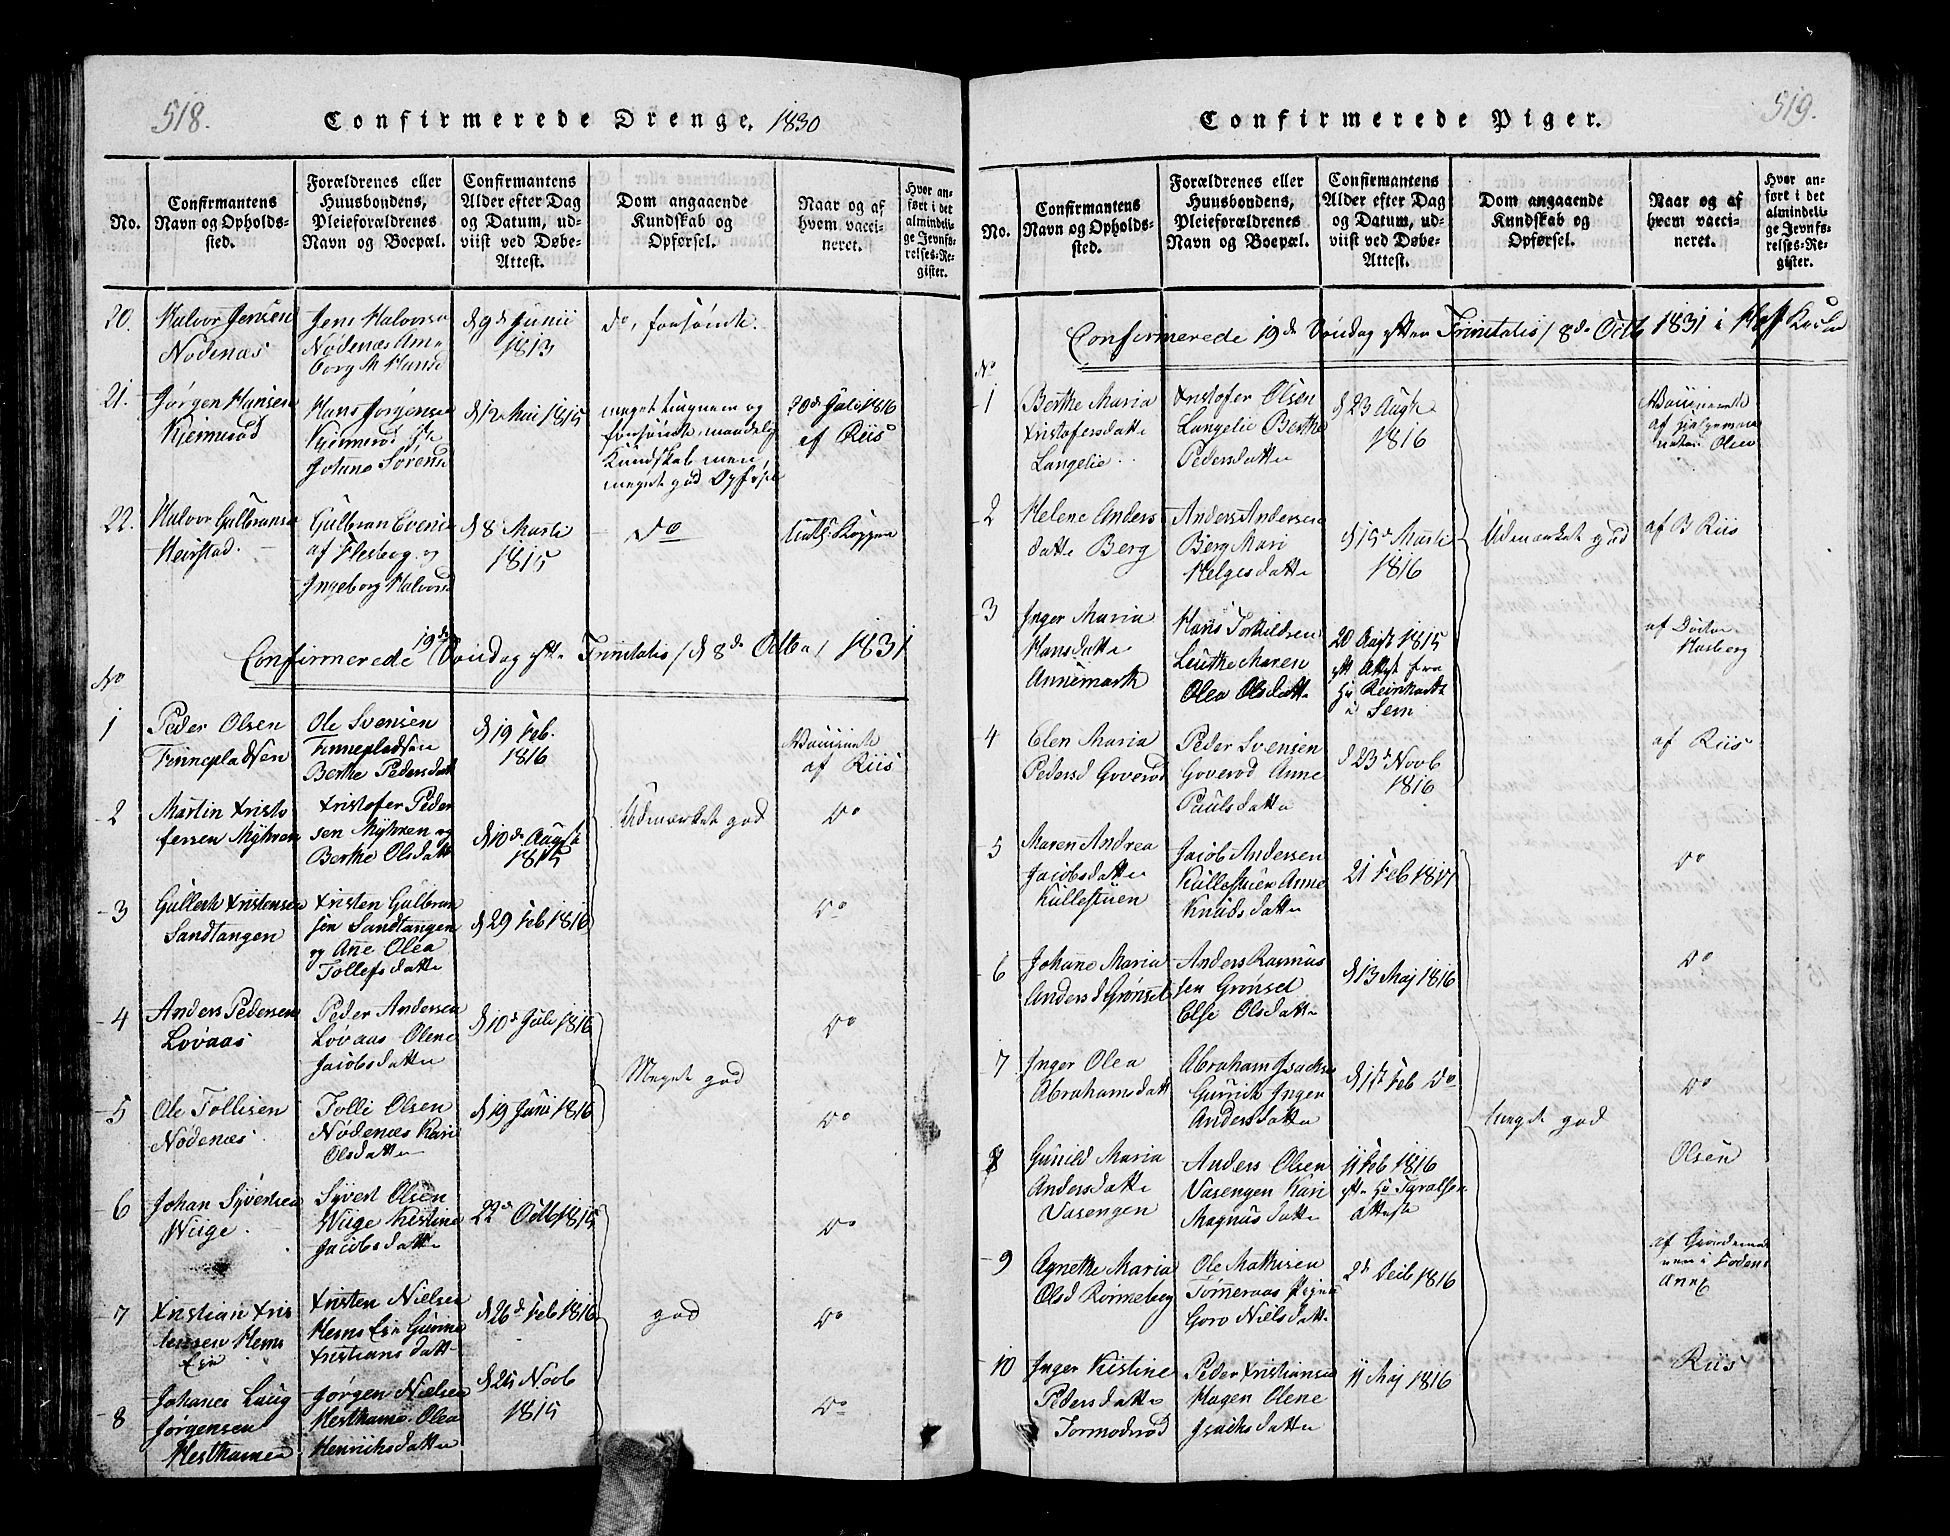 518.
Confirmerede Drenge. 1830
No.
Confirmantens
Navn og Opholds-
sted.
Forældrenes eller
Huusbondens,
Pleieforældrenes
Navn og Boepæl.
Confirmantens
Alder efter Dag
og Datum, ud-
viist ved Døbe-
Attest.
Dom angaaende
Kundskab og
Opførsel.
Naar og af
hvem vacci-
neret.
Hvor an-
ført i det
almindeli-
ge Jevnfø-
relses-Re-
gister.
20.
Halvor Jensen
Nodenæs
Jens Halvorse
Nodenæs
d 9de Junii
1813
do, forsømt.
21.
Jørgen Hansen
Kjemerød
Hans Jørgensen
Kjemerød
Johane Sørensd
d 12 Mai 1815
meget
Kundskab men
meget god Opførsel
20de Juli 1816
af Riis
22.
Halvor Gulbransen
Heirstad.
Gulbran Evense
af Flesberg og
Ingeborg Halvorsd
d 8 Marti
1815
Do
Confirmerede 19de Søndag eft Trinitatis / d 8de Octbr / 1831
No
1
Peder Olsen
Finnepladsen
Ole Svensen
Finnepladsen
Berthe Pedersdatt
d 19 Feb.
1816
af Riis
2
Martin Xristo
fersen Myhren
Xristofer Peder
sen Myhren og
Berthe Olsdatt
d 10de Augst
1815
Udmærket god
Do
3
Gullech Xristensen
Sandtangen
Xristen Gulbran
sen Sandtangen
og Ane Olea
Tollefsdatte
d 29 Feb 1816
Do
4
Anders Pedersen
Lovaas
Peder Andersen
Lovaas Olene
Jacobsdatte
d 10de Juli 1816
Meget god
Do
5
Ole Tollisen
Nodenæs
Tolli Olsen
Nodenæs Kari
Olsdatte
d 19 Juni 1816
Do
6
Johan Syversen
Wiige.
Syvert Olsen
Wiige Kistine
Jacobsdatte
22de Octb 1815
Do
7
Xristian Xris
tensen Hems
Eie
Xristen Nielsen
Hems Eie Gunne
Xristiansdatt
d 26de Feb 1816
god
Do
8
Johanes Laug
Jørgensen
Hesthamer
Jørgen Nielsen
Hesthame Olea
Henrichsdatte
d 25 Novb
1815
Do
519.
Confirmerede Piger.
No.
Confirmantens
Navn og Opholds-
sted.
Forældrenes eller
Huusbondens,
Pleieforældrenes
Navn og Boepæl.
Confirmantens
Alder efter Dag
og Datum, ud-
viist ved Døbe-
Attest.
Dom angaaende
Kundskab og
Opførsel.
Naar og af
hvem vacci-
neret.
Hvor an-
ført i det
almindeli-
ge Jevnfø-
relses-Re-
gister.
Confirmerede 19de Søndag efter Trinitatis / 8de Octb 1831 i
No
1
Berthe Maria
Xristofersdatte
Langelie.
Xristofer Olsen
Langelie Berthe
Pedersdatte
d 23 Augt
1816
2
Helene Anders
datte Berg
Anders Andersen
Berg Mari
Helgesdatte
d 13de Marti
1816
Udmærket god
af B Riis
3
Inger Maria
Hansdatte
Annemark
Hans Torkildsen
Leuthe Maren
Olea Olsdatte
20 Augt 1815
eft Attest fra
Hr Reinhardt
i Sem
af Doctor
Hasberg
4
Elen Maria
Pedersd Goverød
Peder Svensen
Goverød Anne
Paulsdatte
d 23de Novb
1816
af Riis
5
Maren Andrea
Jacobsdatte
Kullestuen
Jacob Andersen
Kullestuen Anne
Knudsdatte
21 Feb 1817
Do
6
Johane Maria
Andersd Grønset
Anders Rasmus
sen Grønset
Else Olsdatte
d 13 Maj 1816
Do
7
Inger Olea
Abrahamsdatt
Abraham Isachs
Gurrich Inger
Andersdatte
d 1ste Feb Do
Do
Meget god
8
Gunild Maria
Andersdatte
Vasengen
Anders Olsen
Vasengen Kari
Magnusdatte
11 Feb 1816
Attest
Olsen
9
Agnethe Maria
Olsd Rønneberg
Ole Mathisen
Tømeraas
Goro Nielsdatt
2de Decb 1816
10
Inger Kistine
Pedersdatte
Tormodrød
Peder Xristiansen
Hagen Olene
Isachsdatte
11 Maj 1816
Riis